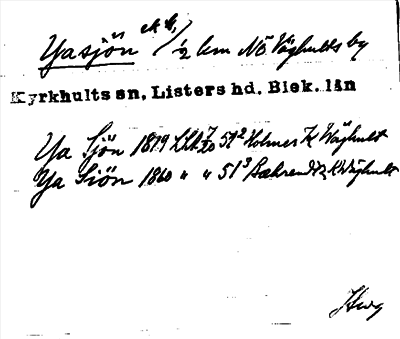 Yasjön 1/2 km NÖ Väghults by
Kyrkhults sn, Listers hd. Blek. län
Ya Sjön 1819 51² Holmer K Wäghult
Ya Siön 1860 " " 51³ K Wäghult